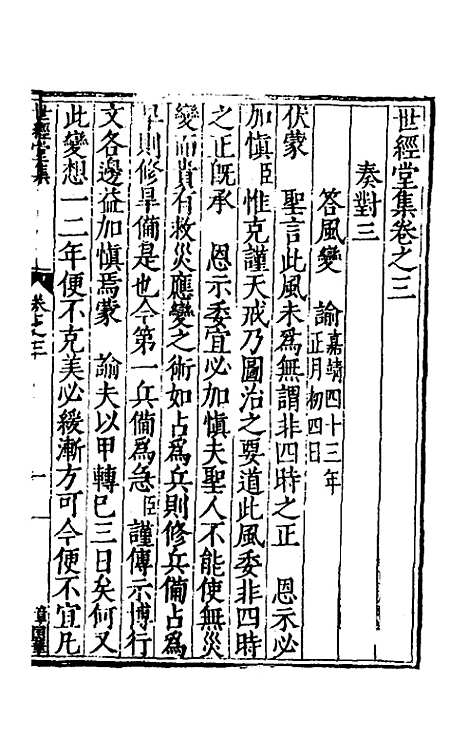 世經堂集卷之三
奏對三
答風變 諭嘉靖四十三年正月初四日
伏蒙 聖言此風未為無謂非四時之正 恩示必
加慎臣惟克謹天戒乃圖治之要道此風委非四時
之正既承 恩示委宜必加慎夫聖人不能使無災
變而貴有救災應變之術如占為兵則修兵備占為
旱則修旱備是也今第一兵備為急臣謹傳示博行
文各邊益加慎焉蒙 諭夫以甲轉巳三日矣何又
此變想一二年便不克美必緩漸方可今便不宜凡
世經堂集
卷之三
一